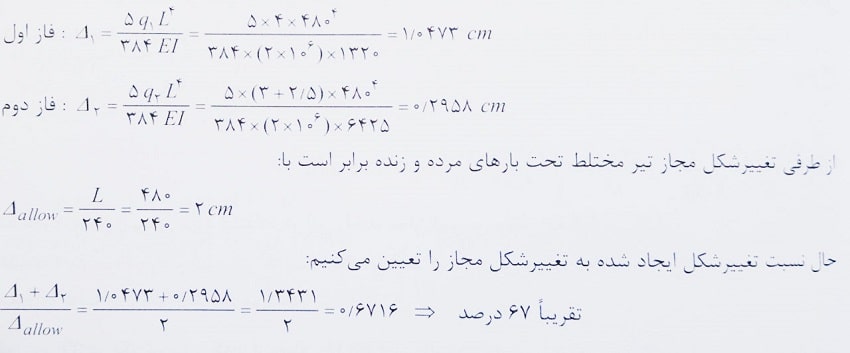 فاز اول : Δ₁ = ۵ q₁ L⁴ / ۳۸۴ EI = ۵×۴×۴۸۰⁴ / ۳۸۴×(۲×۱۰⁶)×۱۳۲۰ = ۱/۰۴۷۳ cm
فاز دوم : Δ₂ = ۵ q₂ L⁴ / ۳۸۴ EI = ۵×(۳+۲/۵)×۴۸۰⁴ / ۳۸۴×(۲×۱۰⁶)×۶۴۲۵ = ۰/۲۹۵۸ cm
از طرفی تغییرشکل مجاز تیر مختلط تحت بارهای مرده و زنده برابر است با:
Δallow = L / ۲۴۰ = ۴۸۰ / ۲۴۰ = ۲ cm
حال نسبت تغییرشکل ایجاد شده به تغییرشکل مجاز را تعیین می‌کنیم:
Δ₁ + Δ₂ / Δallow = ۱/۰۴۷۳+۰/۲۹۵۸ / ۲ = ۱/۳۴۳۱ / ۲ = ۰/۶۷۱۶ ⇒ تقریباً ۶۷ درصد